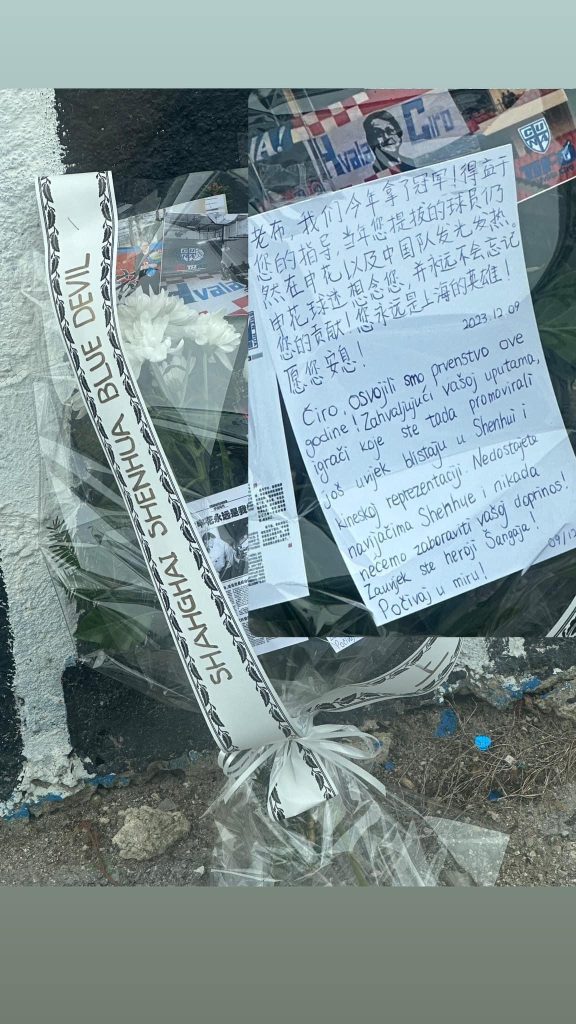 Hvala Ćiro
老布,我们今年拿了冠军!得益于
您的指导,当年您提拔的球员仍
然在申花以及中国队发光发热。
申花球迷想念您,并永远不会忘记
您的贡献!您永远是上海的英雄!
愿您安息!
2023.12.09
Ćiro, osvojili smo prvenstvo ove
godine! Zahvaljujući vašoj uputama,
igrači koje ste tada promovirali,
još uvjek blistaju u Shenhui i
kineskoj reprezentaciji. Nedostajete
navijačima Shenhue i nikada
nećemo zaboraviti vašoj doprinos!
Zauvjek ste heroji Šangaja!
Počivaj u miru!
09/12
SHAHGHAI SHENHUA BLUE DEVIL
Hvala
花永远是我
上